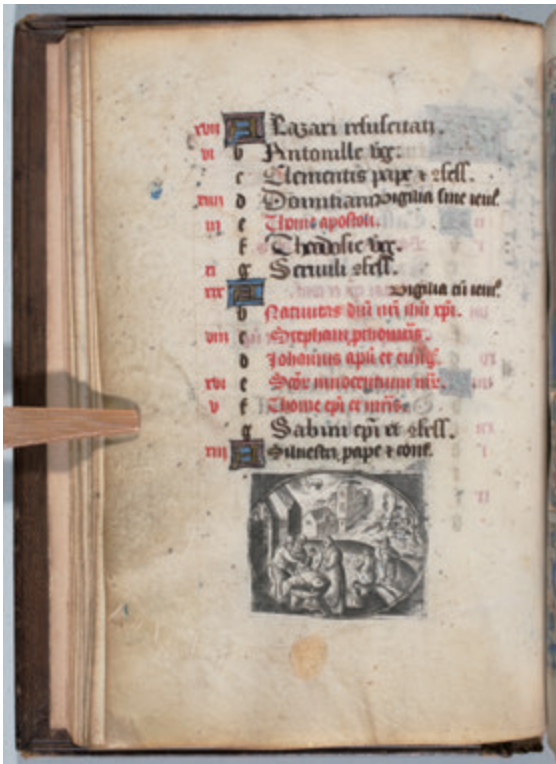 xvii A Lazari resuscitati.
vi b Antonille v̄ge.
c Clementis pape ⁊ ɔfess.
xiiii d Domitiani vigilia sine ieiu̅.
iii e Thome apostoli.
f Theodosie v̄ge.
xi g Seruuli ɔfess.
xix A vigilia cū ieiu̅.
b Natiuitas dn̄i nr̄i ihū xp̄i.
viii c Stephani
d Johannis apl̄i et
xvi e innocentum mr̄.
v f Thome ep̄i et mr̄is.
g Sabini ep̄i et ɔfess.
xiii A Siluestri pape ⁊ conf.